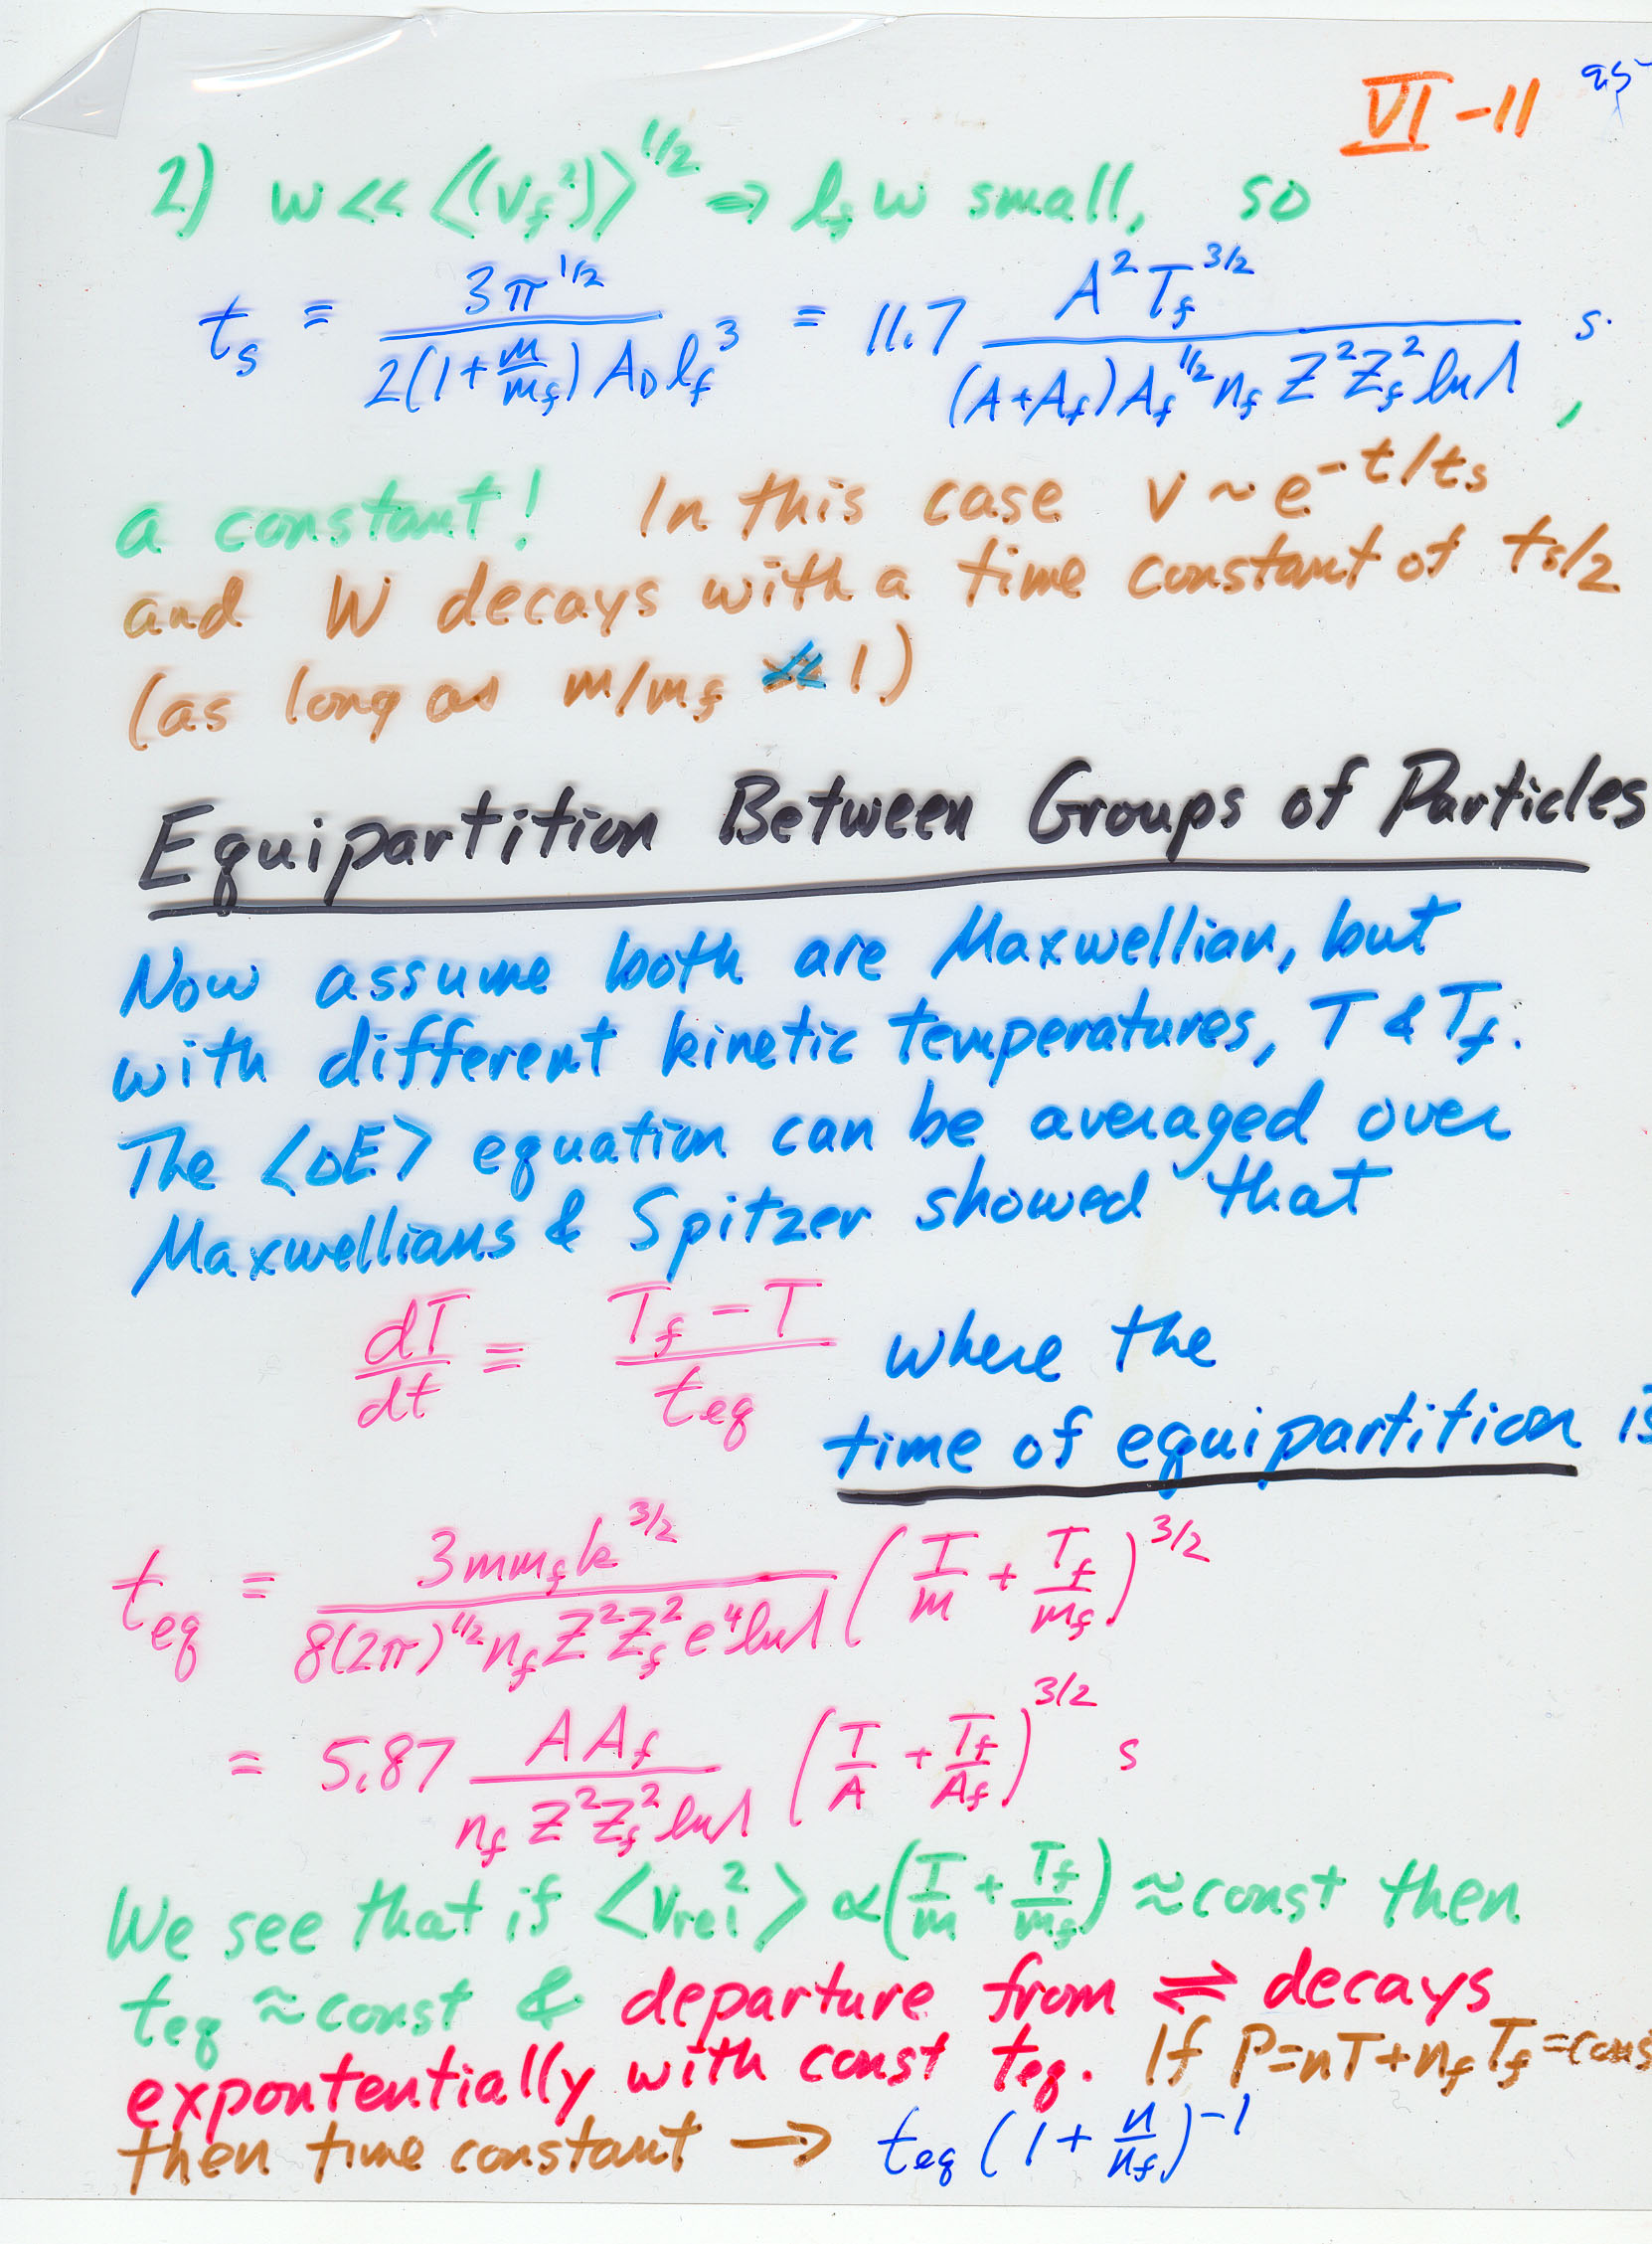 VI-11
2) w << ⟨(v_f²)⟩^{1/2} ⇒ l_f w small, so
t_s ≡ 3π^{1/2} / 2(1+m/m_f) A_D l_f³ = 11.7 A² T_f^{3/2} / (A+A_f) A_f^{1/2} n_f Z² Z_f² lnΛ s.,
a constant! In this case v ~ e^{-t/t_s}
and W decays with a time constant of t_s/2
(as long as m/m_f << 1)
Equipartition Between Groups of Particles
Now assume both are Maxwellian, but
with different kinetic temperatures, T & T_f.
The ⟨ΔE⟩ equation can be averaged over
Maxwellians & Spitzer showed that
dT/dt = (T_f - T)/t_eq where the
time of equipartition is
t_eq ≡ 3mm_f k^{3/2} / 8(2π)^{1/2} n_f Z² Z_f² e⁴ lnΛ (T/m + T_f/m_f)^{3/2}
= 5.87 A A_f / n_f Z² Z_f² lnΛ (T/A + T_f/A_f)^{3/2} s
We see that if ⟨v_rel²⟩ ∝ (T/m + T_f/m_f) ≈ const then
t_eq ≈ const & departure from ⇌ decays
expontentially with const t_eq. If P=nT+n_f T_f = cons
then time constant → t_eq (1 + n/n_f)^{-1}